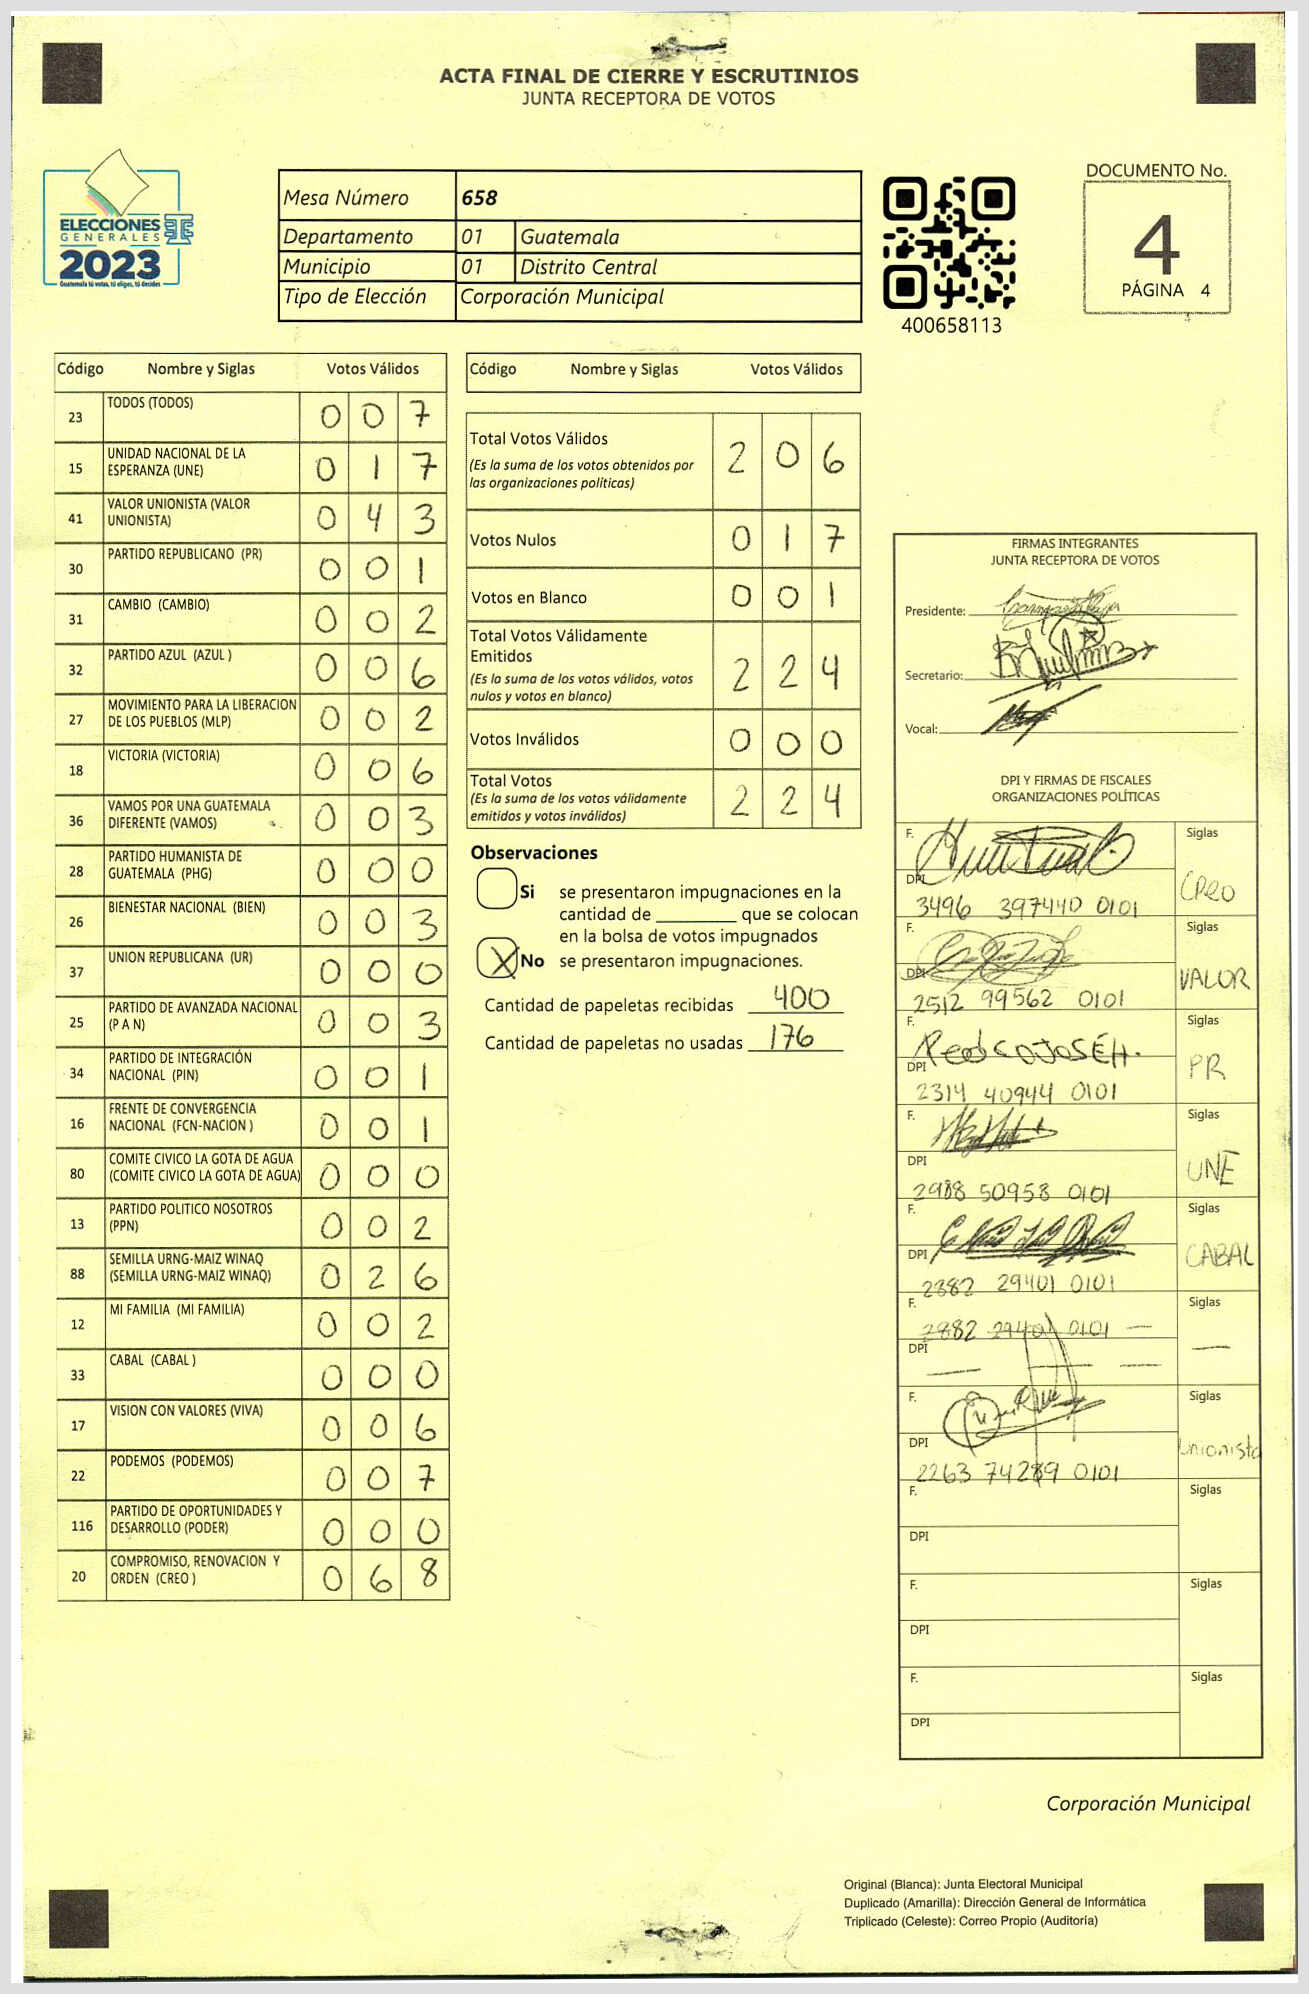 ACTA FINAL DE CIERRE Y ESCRUTINIOS
JUNTA RECEPTORA DE VOTOS
ELECCIONES
GENERALES
2023
Guatemala tú votas, tú eliges, tú decides
Mesa Número 658
Departamento 01 Guatemala
Municipio 01 Distrito Central
Tipo de Elección Corporación Municipal
400658113
DOCUMENTO No.
4
PÁGINA 4
Código Nombre y Siglas Votos Válidos
23 TODOS (TODOS) 0 0 7
15 UNIDAD NACIONAL DE LA
ESPERANZA (UNE) 0 1 7
41 VALOR UNIONISTA (VALOR
UNIONISTA) 0 4 3
30 PARTIDO REPUBLICANO (PR) 0 0 1
31 CAMBIO (CAMBIO) 0 0 2
32 PARTIDO AZUL (AZUL ) 0 0 6
27 MOVIMIENTO PARA LA LIBERACION
DE LOS PUEBLOS (MLP) 0 0 2
18 VICTORIA (VICTORIA) 0 0 6
36 VAMOS POR UNA GUATEMALA
DIFERENTE (VAMOS) 0 0 3
28 PARTIDO HUMANISTA DE
GUATEMALA (PHG) 0 0 0
26 BIENESTAR NACIONAL (BIEN) 0 0 3
37 UNION REPUBLICANA (UR) 0 0 0
25 PARTIDO DE AVANZADA NACIONAL
(P A N) 0 0 3
34 PARTIDO DE INTEGRACIÓN
NACIONAL (PIN) 0 0 1
16 FRENTE DE CONVERGENCIA
NACIONAL (FCN-NACION ) 0 0 1
80 COMITE CIVICO LA GOTA DE AGUA
(COMITE CIVICO LA GOTA DE AGUA) 0 0 0
13 PARTIDO POLITICO NOSOTROS
(PPN) 0 0 2
88 SEMILLA URNG-MAIZ WINAQ
(SEMILLA URNG-MAIZ WINAQ) 0 2 6
12 MI FAMILIA (MI FAMILIA) 0 0 2
33 CABAL (CABAL ) 0 0 0
17 VISION CON VALORES (VIVA) 0 0 6
22 PODEMOS (PODEMOS) 0 0 7
116 PARTIDO DE OPORTUNIDADES Y
DESARROLLO (PODER) 0 0 0
20 COMPROMISO, RENOVACION Y
ORDEN (CREO ) 0 6 8
Código Nombre y Siglas Votos Válidos
Total Votos Válidos 2 0 6
(Es la suma de los votos obtenidos por
las organizaciones políticas)
Votos Nulos 0 1 7
Votos en Blanco 0 0 1
Total Votos Válidamente
Emitidos 2 2 4
(Es la suma de los votos válidos, votos
nulos y votos en blanco)
Votos Inválidos 0 0 0
Total Votos 2 2 4
(Es la suma de los votos válidamente
emitidos y votos inválidos)
Observaciones
Si se presentaron impugnaciones en la
cantidad de ________ que se colocan
en la bolsa de votos impugnados
X No se presentaron impugnaciones.
Cantidad de papeletas recibidas 400
Cantidad de papeletas no usadas 176
FIRMAS INTEGRANTES
JUNTA RECEPTORA DE VOTOS
Presidente:
Secretario:
Vocal:
DPI Y FIRMAS DE FISCALES
ORGANIZACIONES POLÍTICAS
F. Siglas
DPI CREO
3496 397440 0101
F. Siglas
DPI VALOR
2512 99562 0101
F. Siglas
PEDRO JOSÉ H.
DPI PR
2314 40944 0101
F. Siglas
DPI UNE
2988 50958 0101
F. Siglas
DPI CABAL
2382 29401 0101
F. Siglas
2882 29401 0101 —
DPI — — — —
F. Siglas
DPI Unionista
2263 74289 0101
F. Siglas
DPI
F. Siglas
DPI
F. Siglas
DPI
Corporación Municipal
Original (Blanca): Junta Electoral Municipal
Duplicado (Amarilla): Dirección General de Informática
Triplicado (Celeste): Correo Propio (Auditoría)